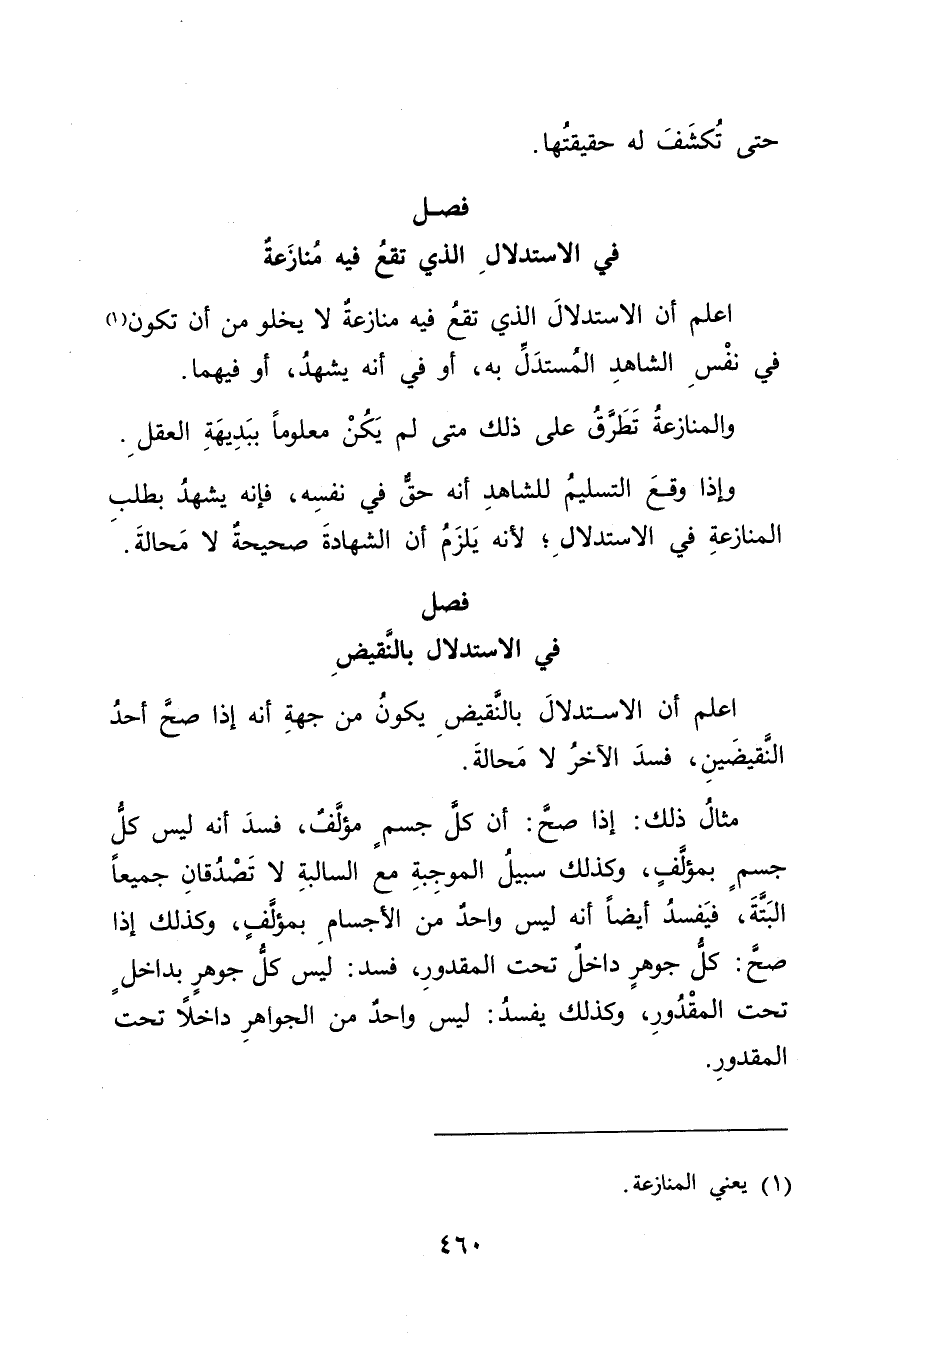 حتى تُكشَفَ له حقيقتُها.
فصل
في الاستدلالِ الذي تقعُ فيه مُنازَعةٌ
اعلم أن الاستدلالَ الذي تقعُ فيه منازعةٌ لا يخلو من أن تكون(١)
في نفْسِ الشاهدِ المُستدَلِّ به، أو في أنه يشهدُ، أو فيهما.
والمنازعةُ تَطَرَّقُ على ذلك متى لم يَكُنْ معلوماً ببَدِيهَةِ العقلِ.
وإذا وقعَ التسليمُ للشاهدِ أنه حقٌّ في نفسِه، فإنه يشهدُ بطلبِ
المنازعةِ في الاستدلالِ؛ لأنه يَلزَمُ أن الشهادةَ صحيحةٌ لا مَحالةَ.
فصل
في الاستدلال بالنَّقيضِ
اعلم أن الاستدلالَ بالنَّقيضِ يكونُ من جهةِ أنه إذا صحَّ أحدُ
النَّقيضَينِ، فسدَ الآخرُ لا مَحالةَ.
مثالُ ذلك: إذا صحَّ: أن كلَّ جسمٍ مؤلَّفٌ، فسدَ أنه ليس كلُّ
جسمٍ بمؤلَّفٍ، وكذلك سبيلُ الموجِبةِ مع السالبةِ لا تَصْدُقانِ جميعاً
البَتَّةَ، فيَفسدُ أيضاً أنه ليس واحدٌ من الأجسامِ بمؤلَّفٍ، وكذلك إذا
صحَّ: كلُّ جوهرٍ داخلٌ تحت المقدورِ، فسد: ليس كلُّ جوهرٍ بداخلٍ
تحت المقْدُورِ، وكذلك يفسدُ: ليس واحدٌ من الجواهرِ داخلًا تحت
المقدورِ.
(١) يعني المنازعة.
٤٦٠